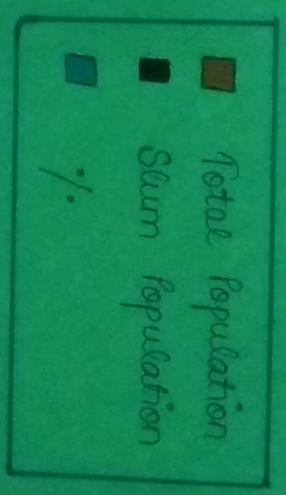 Total Population
Slum Population
%